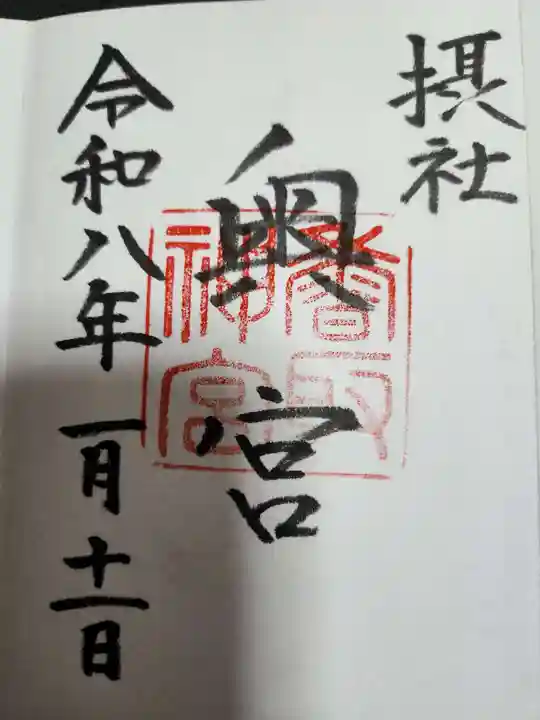 摂社
奥宮
香取神宮
令和八年一月十一日